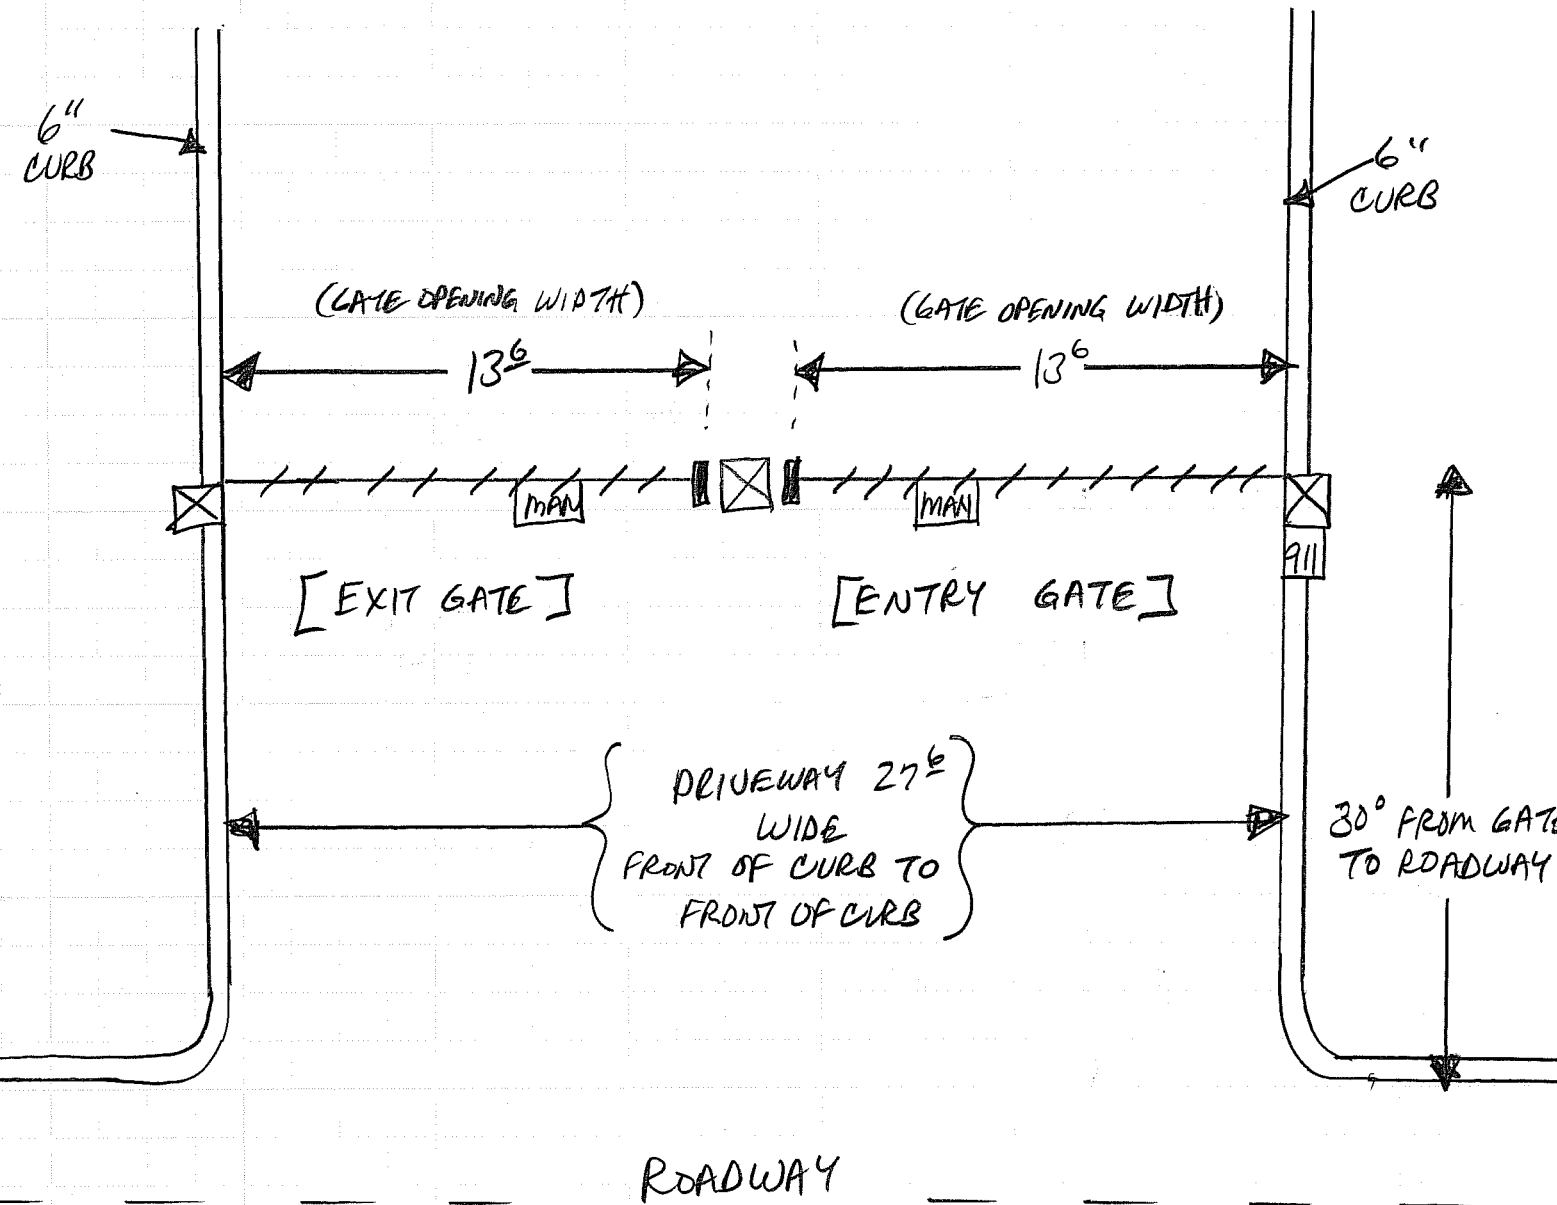 6"
CURB
6"
CURB
(GATE OPENING WIDTH)
13 6
(GATE OPENING WIDTH)
13 6
MAN
MAN
911
[EXIT GATE]
[ENTRY GATE]
DRIVEWAY 27 6
WIDE
FRONT OF CURB TO
FRONT OF CURB
30° FROM GATE
TO ROADWAY
ROADWAY